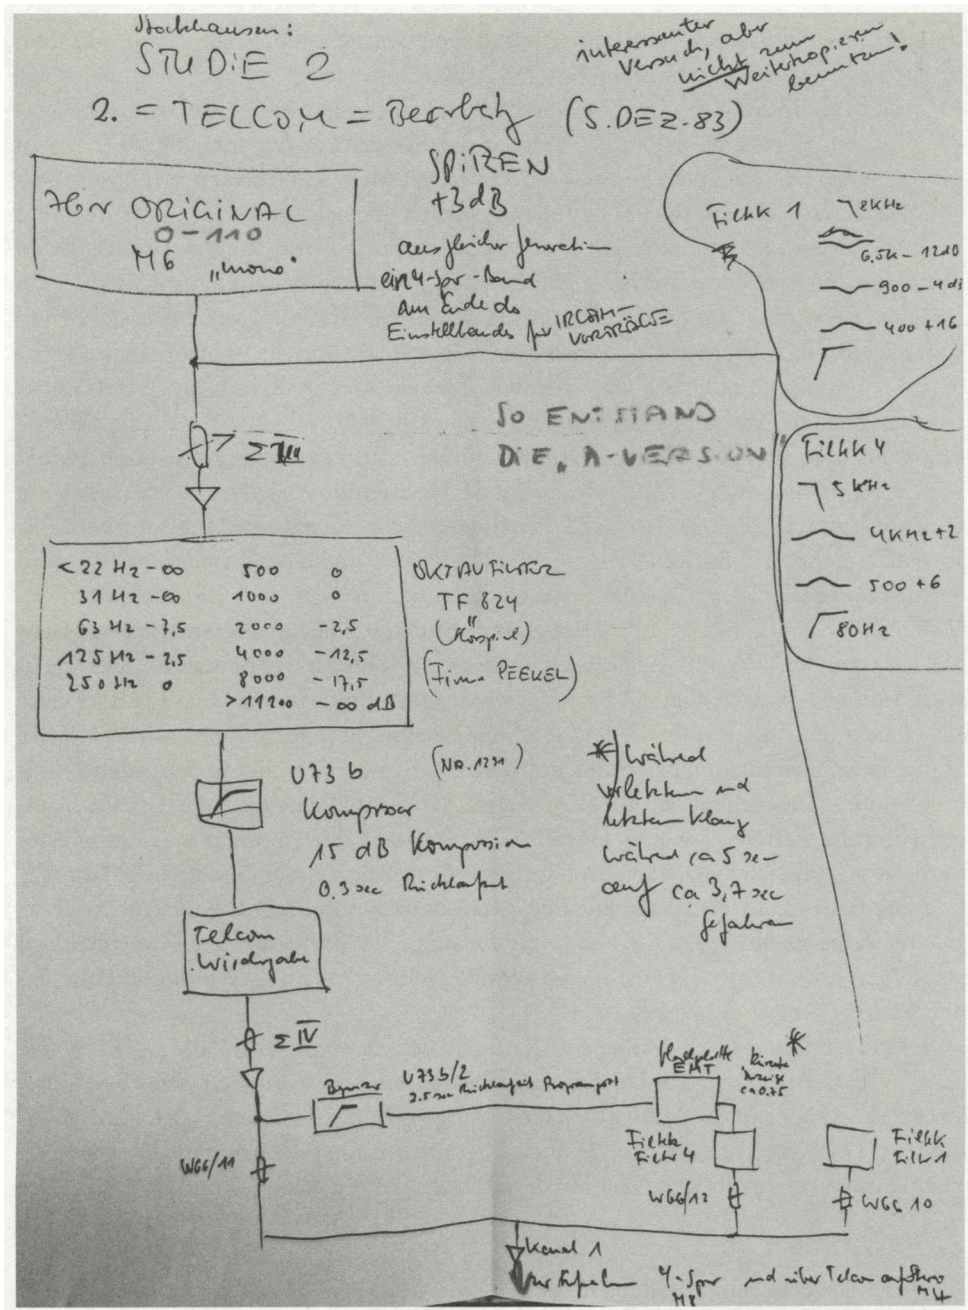 Stockhausen:
STUDIE 2
interessanter
Versuch, aber
nicht zum
Weiterkopieren
benutzen!
2. = TELCOM = Bearbeitg (5. DEZ. 83)
76er ORIGINAL
0-110
M6 „mono"
SPiREN
+3dB
aus gleicher Generation
ein 4-Spur-Band
am Ende des
Einstellbandes für IRCAM-
VORTRÄGE
Filter 1
2KHz
6,5K-12dB
900-4dB
400+16
SO ENTSTAND
DiE „A-VERSION
Σ III
Filter 4
5 KHz
4KHz+2
500+6
80Hz
<22 Hz -∞ 500 0
31 Hz -∞ 1000 0
63 Hz -7,5 2000 -2,5
125Hz -2,5 4000 -12,5
250Hz 0 8000 -17,5
>11200 -∞ dB
OKTAVFILTER
TF 824
(Hörspiel)
(Firma PEEKEL)
U73 b (NR. 1291)
Kompressor
15 dB Kompression
0,3 sec Rücklaufzeit
* während
vorletztem und
letztem Klang
während ca 5 sec
auf ca 3,7 sec
gefahren
Telcom
Wiedergabe
Σ IV
Begrenzer
U73b/2
2.5 sec Rücklaufzeit Programmpost
Hallplatte
EMT
kürzeste
Anzeige
ca 0.75
*
W66/11
Filter 4
W66/12
Filter 1
W66 10
Kanal 1
zur Aufnahme 4-Spur und über Telcom auf Stereo
M8 M4